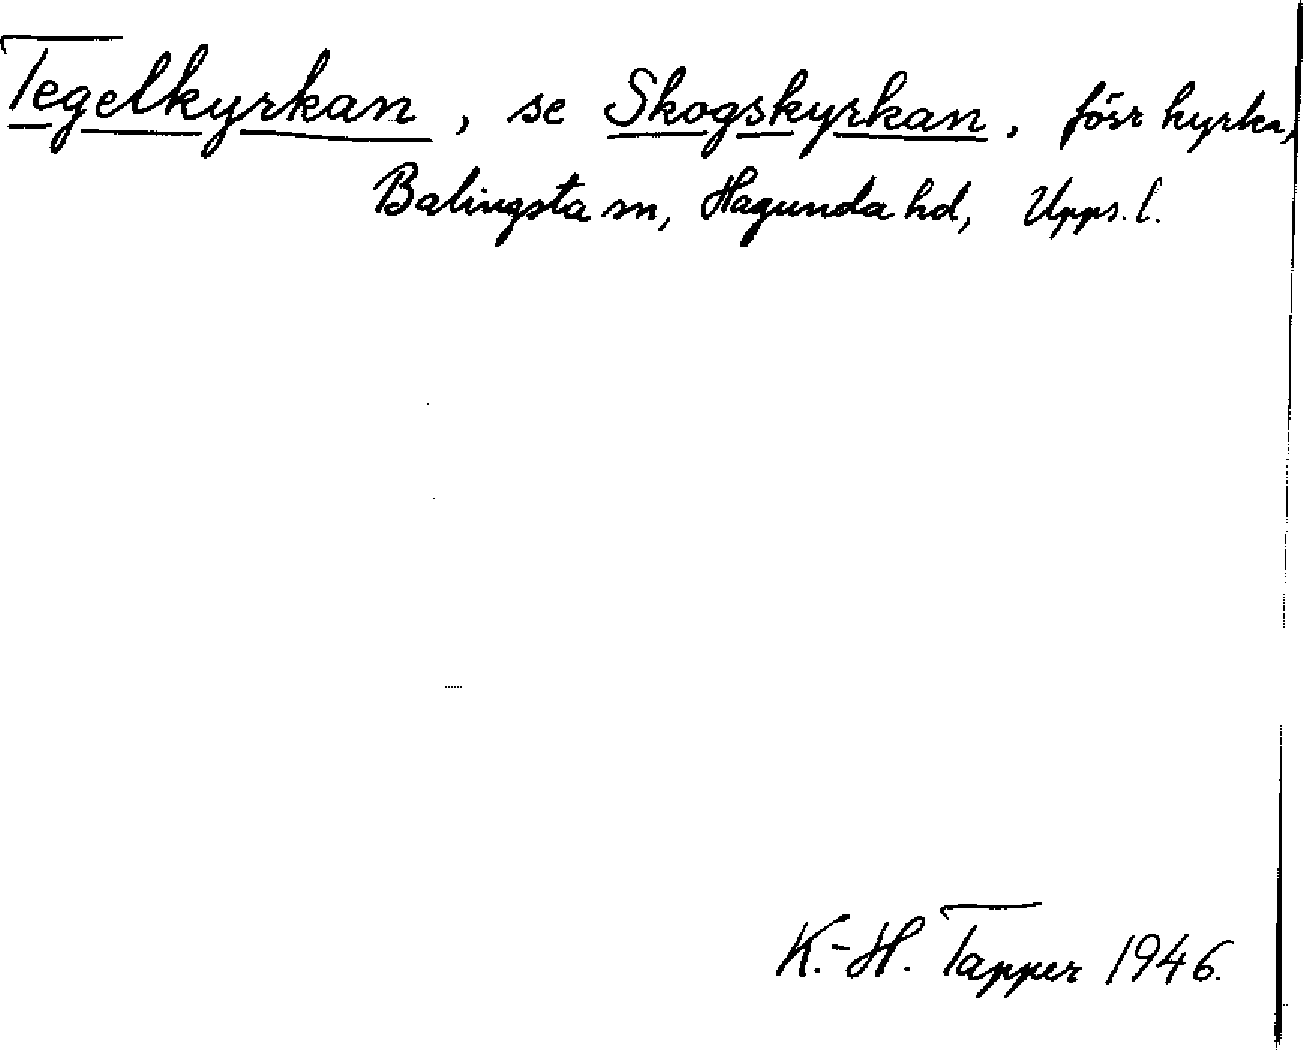 Tegelkyrkan, se Skogskyrkan. förr kyrka,
Balingsta sn, Hagunda hd, Upps. l.
K.-H. Tapper 1946.